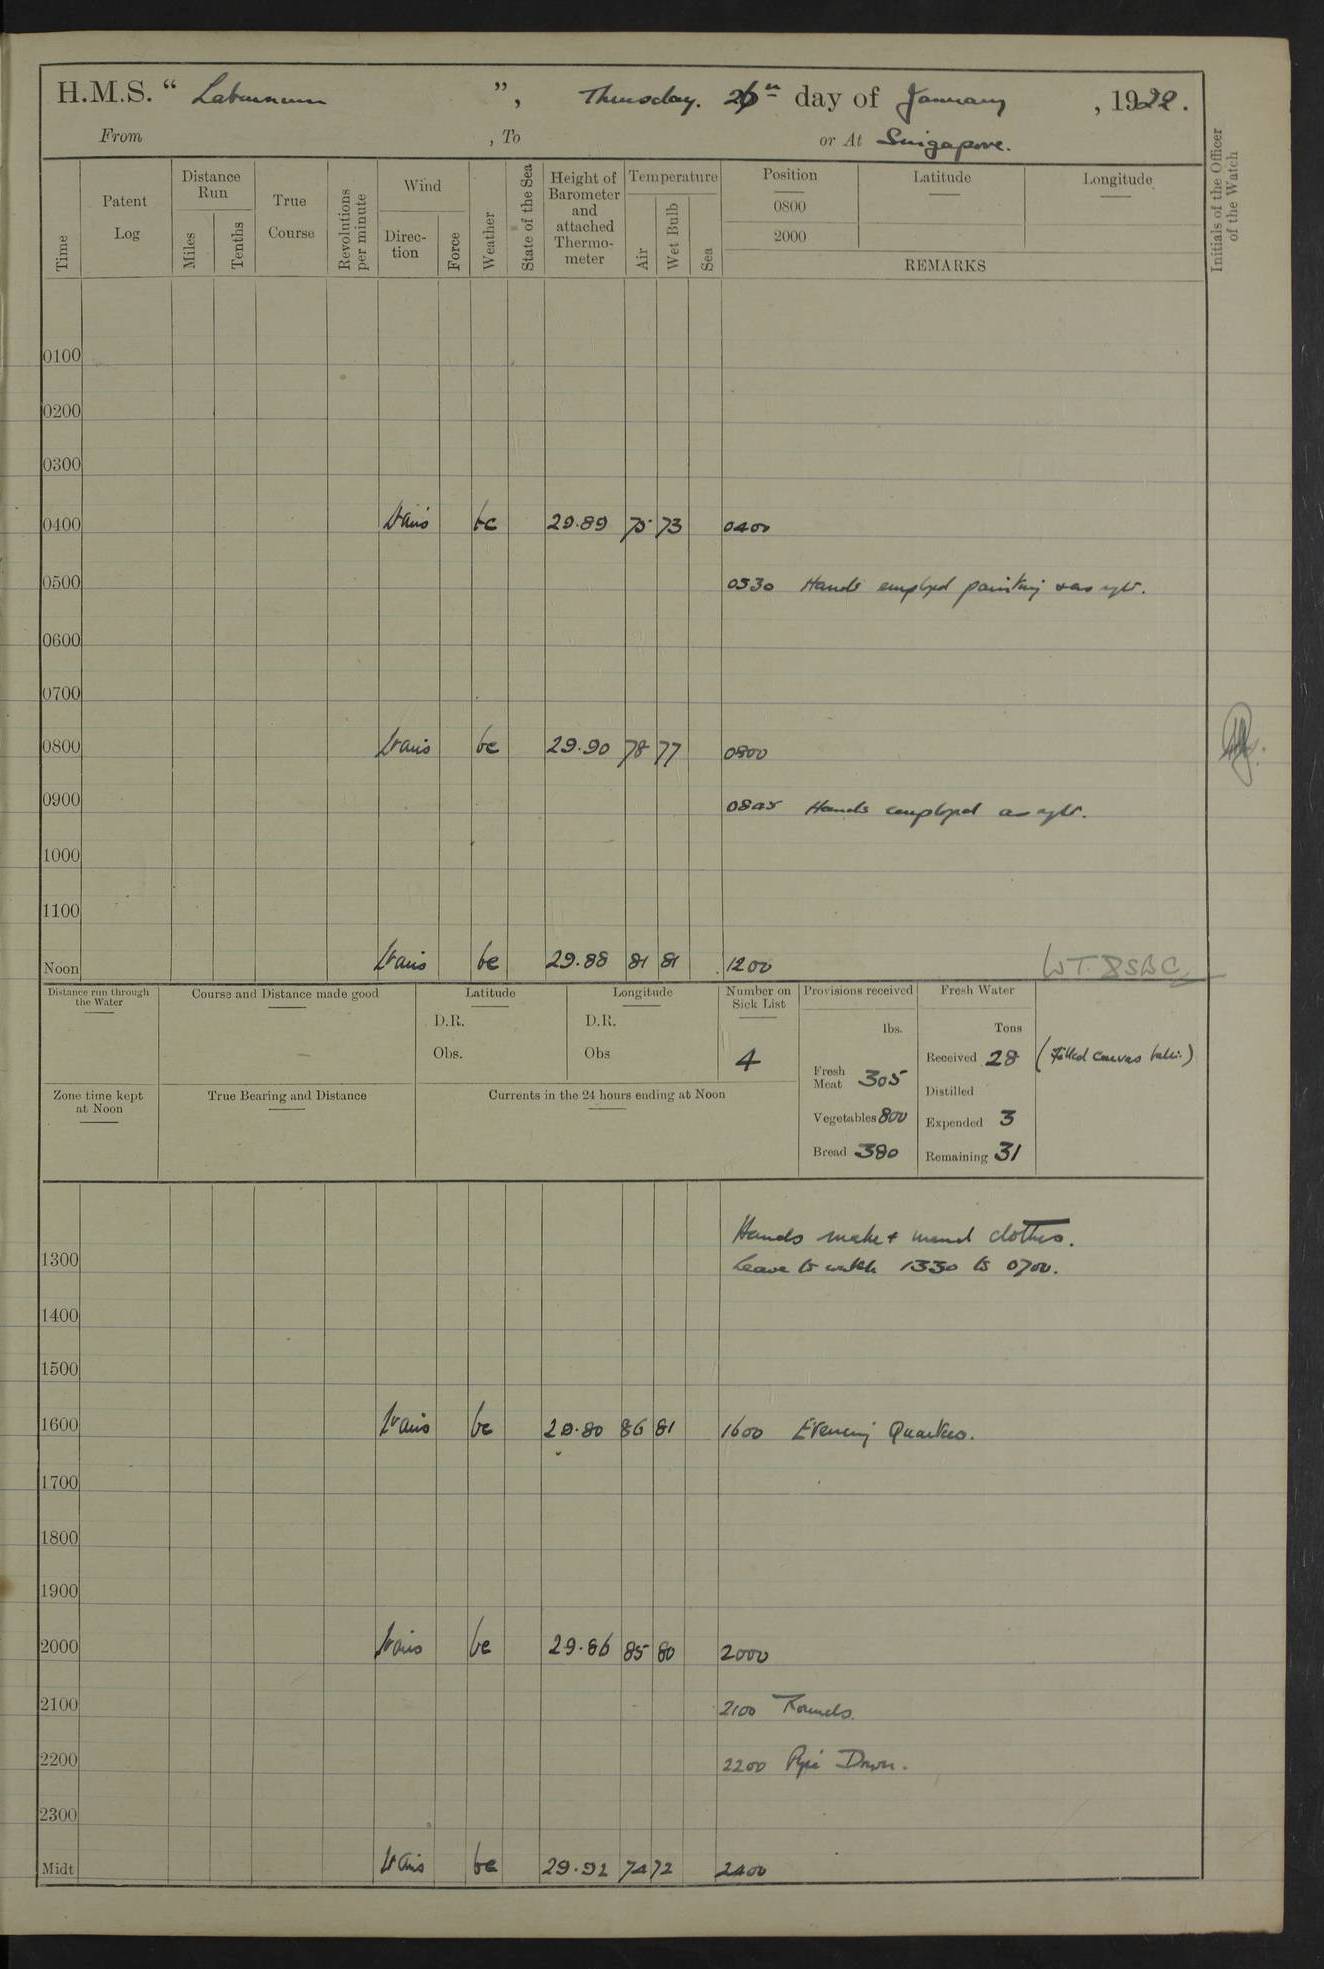 H.M.S. “ Laburnum ”, Thursday. 26th day of January , 1922.
From , To or At Singapore.
Time Patent Log Distance Run Miles Tenths True Course Revolutions per minute Wind Direc-tion Force Weather State of the Sea Height of Barometer and attached Thermo-meter Temperature Air Wet Bulb Sea Position 0800 2000 Latitude Longitude REMARKS Initials of the Officer of the Watch
0100
0200
0300
0400 Vars bc 29.89 75 73 0400
0500 0530 Hands employed painting & as reqte.
0600
0700
0800 Vars bc 29.90 78 77 0800
0900 0845 Hands employed as reqte.
1000
1100
Noon Vars bc 29.88 81 81 1200
Distance run through the Water Course and Distance made good Latitude Longitude Number on Sick List Provisions received Fresh Water
D.R. D.R. lbs. Tons
Obs. Obs 4 Fresh Meat 305 Received 28 (Filled canvas )
Zone time kept at Noon True Bearing and Distance Currents in the 24 hours ending at Noon Distilled
Vegetables 800 Expended 3
Bread 380 Remaining 31
Hands make & mend clothes.
1300 Leave to watch 1330 to 0700.
1400
1500
1600 Vars bc 29.80 86 81 1600 Evening Quarters.
1700
1800
1900
2000 Vars bc 29.86 85 80 2000
2100 2100 Rounds.
2200 2200 Pipe Down.
2300
Midt Vars bc 29.92 74 72 2400